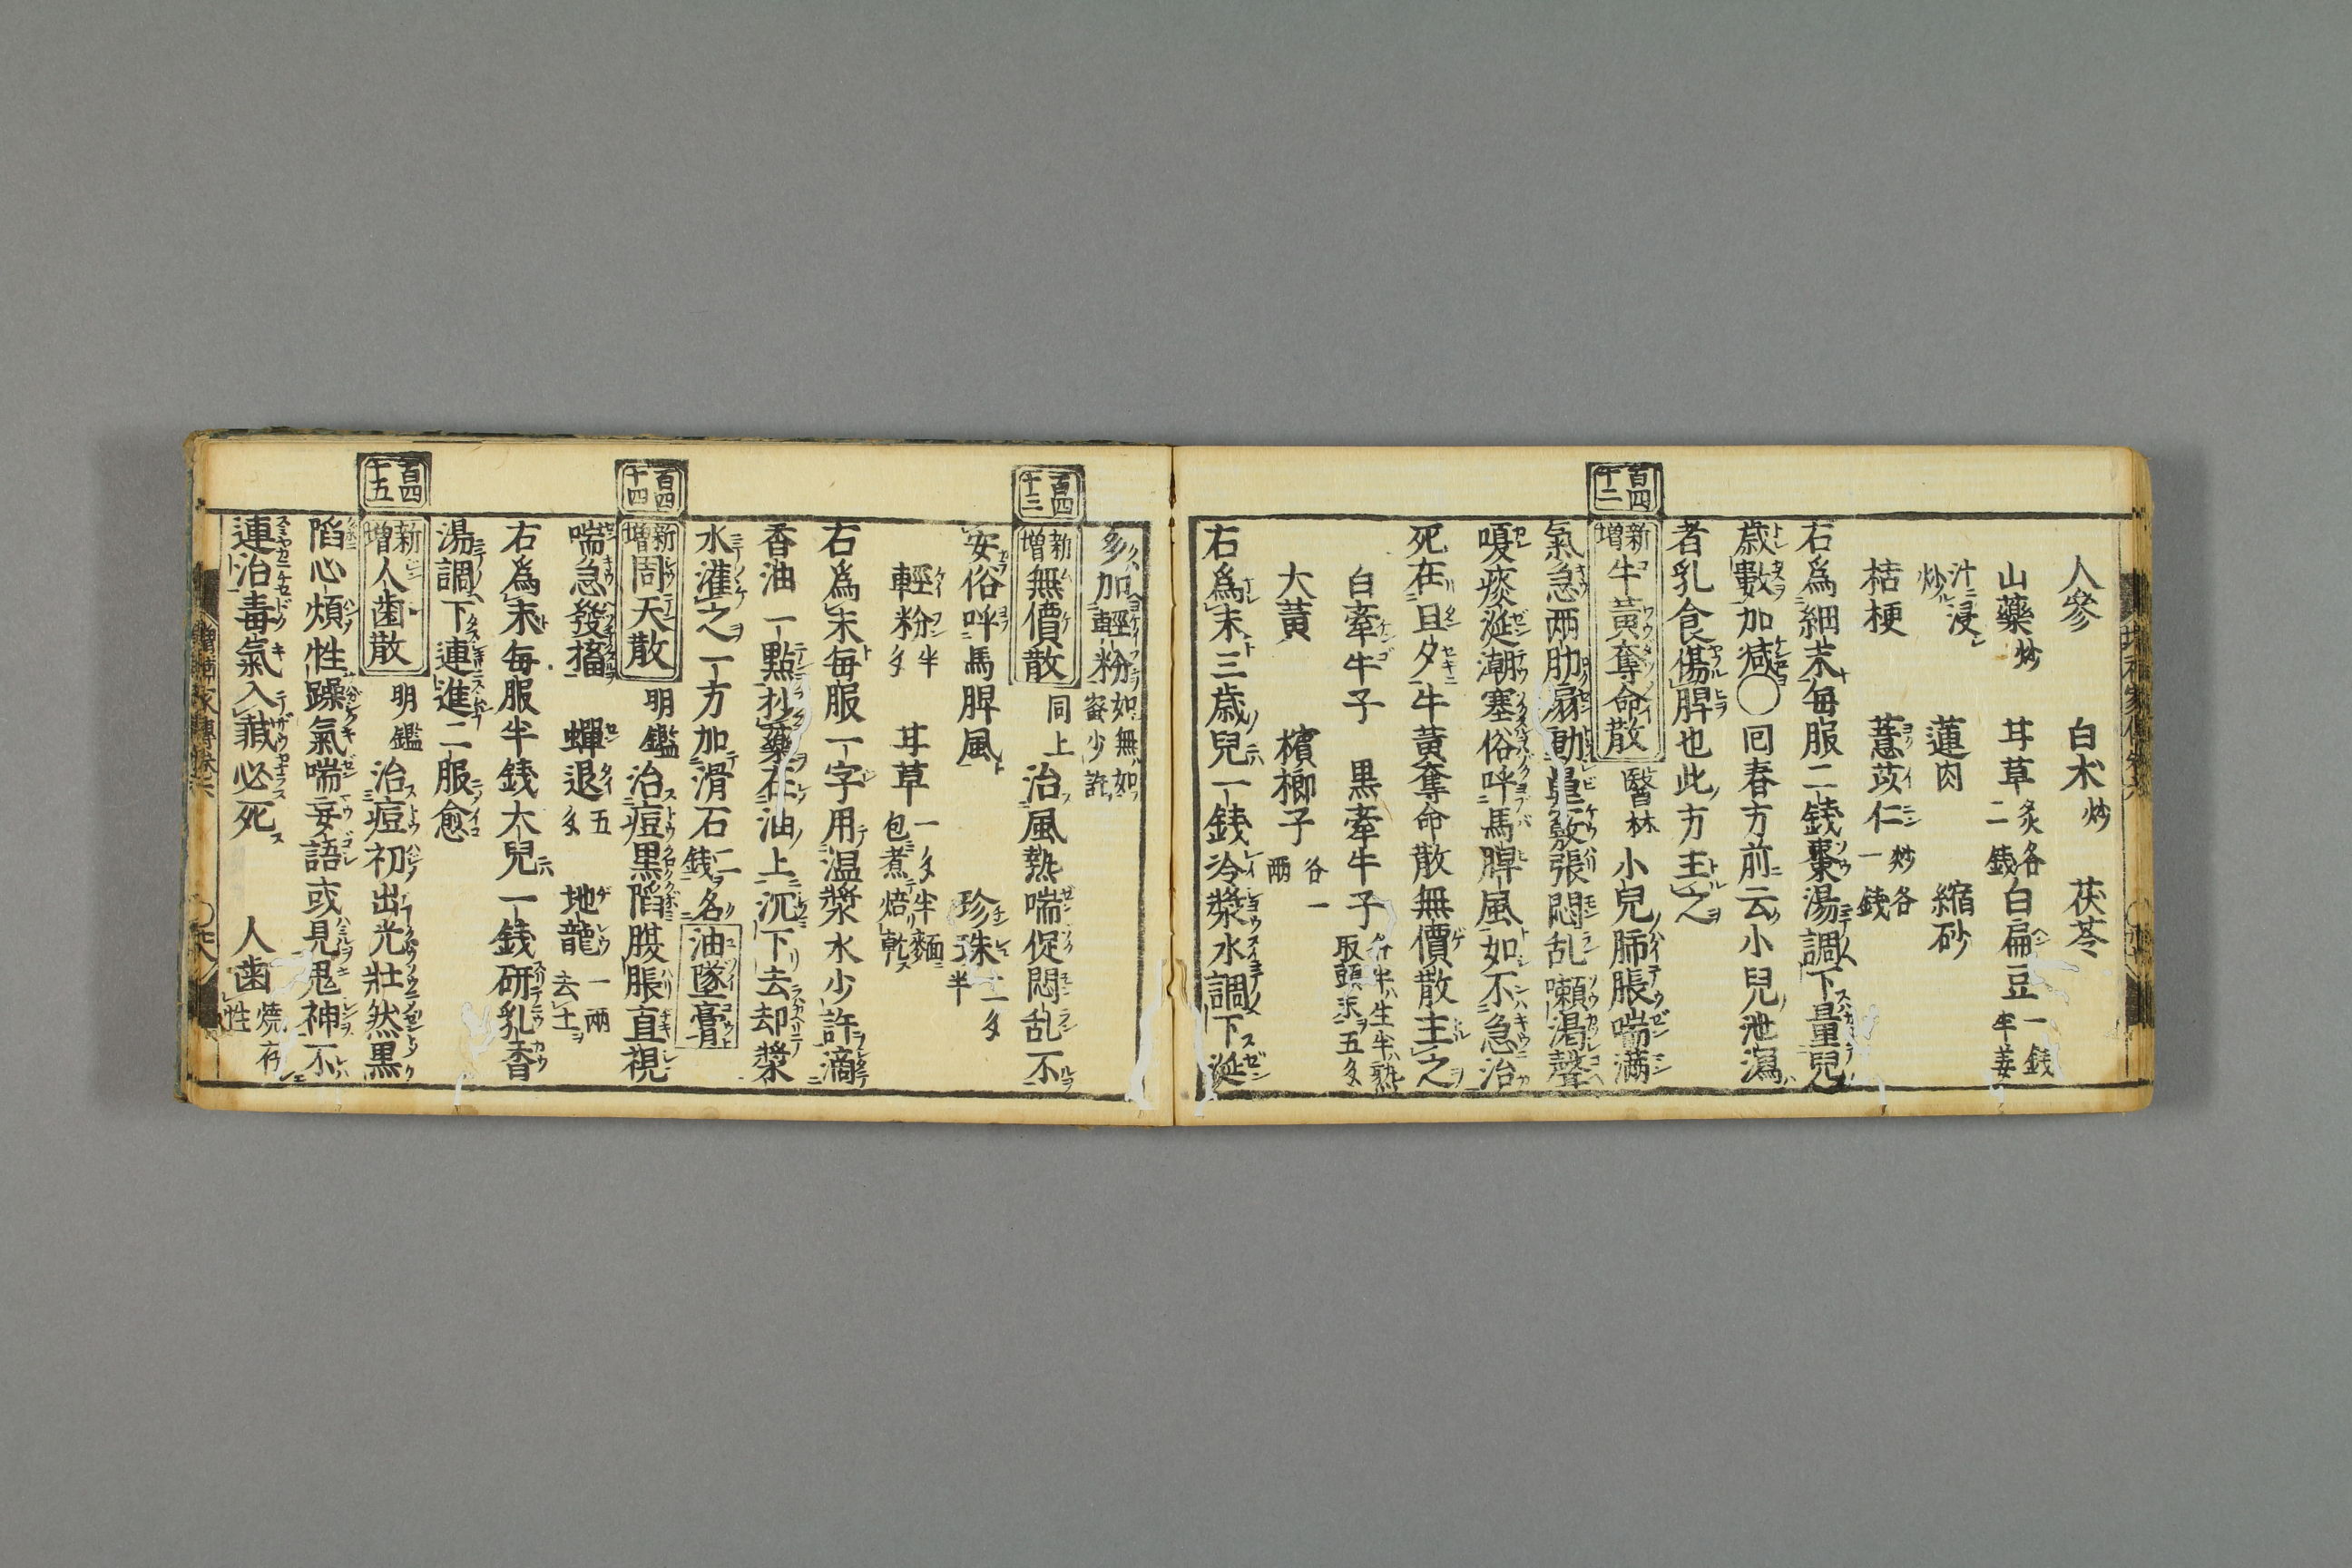 人參 白朮炒 茯苓
山藥炒 甘草炙各二錢 白扁豆一錢半姜
汁ニ浸炒 蓮肉 縮砂
桔梗 薏苡仁炒各一錢
右爲細末毎服二錢棗湯調下量兒
歳數加減〇回春方前云小兒泄瀉
者乳食傷脾也此方主之
百四十二
新増牛黃奪命散 醫林 小兒肺脹喘滿
氣急兩肋扇動鼻竅張悶乱嗽渴聲
嗄痰涎潮塞俗呼馬脾風如不急治
死在旦夕牛黃奪命散無價散主之
白牽牛子 黒牽牛子各半生半熟取頭末五匁
大黃 檳榔子各一兩
右爲末三歳兒一錢冷漿水調下涎
多加輕粉如無如蜜少許
百四十三
新増無價散 同上 治風熱喘促悶乱不
安俗呼馬脾風
輕粉半匁 甘草一匁半麵包煮焙乾
珍珠二匁半
右爲末毎服一字用温漿水少許滴
香油一點抄藥在油上沉下去却漿
水灌之一方加滑石二錢名油墜膏
百四十四
新増周天散 明鑑 治痘黒陷腹脹直視
喘急發搐 蟬退五匁 地龍一兩去土
右爲末毎服半錢大兒一錢研乳香
湯調下連進二服愈
百四十五
新増人齒散 明鑑 治痘初出光壯然黒
陷心煩性躁氣喘妄語或見鬼神不
連治毒氣入藏必死 人齒燒存性